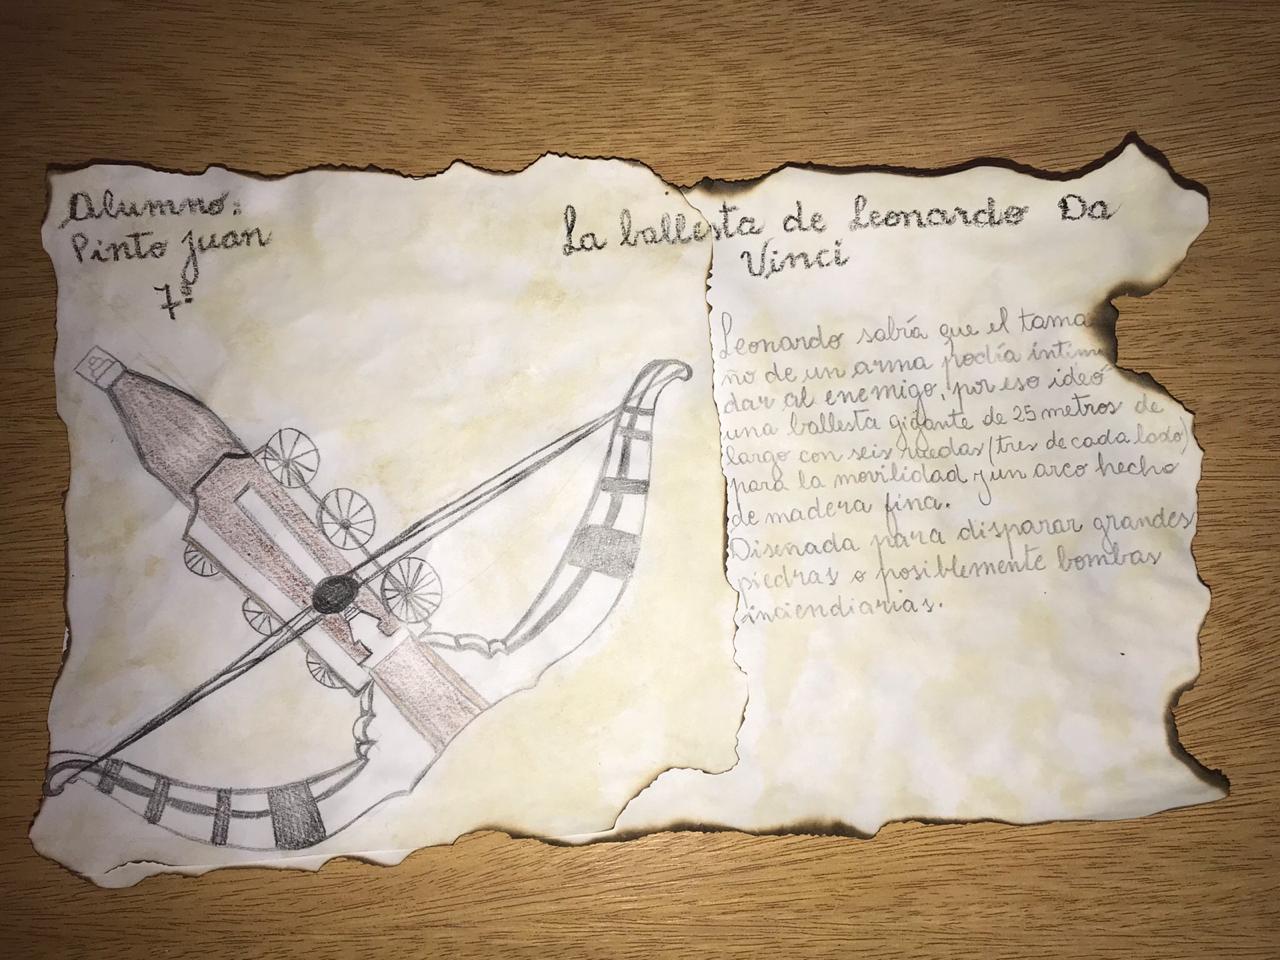 Alumno:
Pinto Juan
7º
La ballesta de Leonardo Da
Vinci
Leonardo sabía que el tama
ño de un arma podía intimi
dar al enemigo, por eso ideó
una ballesta gigante de 25 metros de
largo con seis ruedas (tres de cada lado)
para la movilidad y un arco hecho
de madera fina.
Disenada para disparar grandes
piedras o posiblemente bombas
incendiarias.